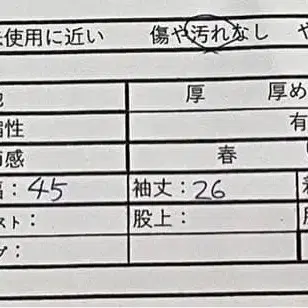 使用に近い 傷や汚れなし
厚 厚め
性 有
感 春
幅：45 袖丈：26
スト： 股上：
プ：